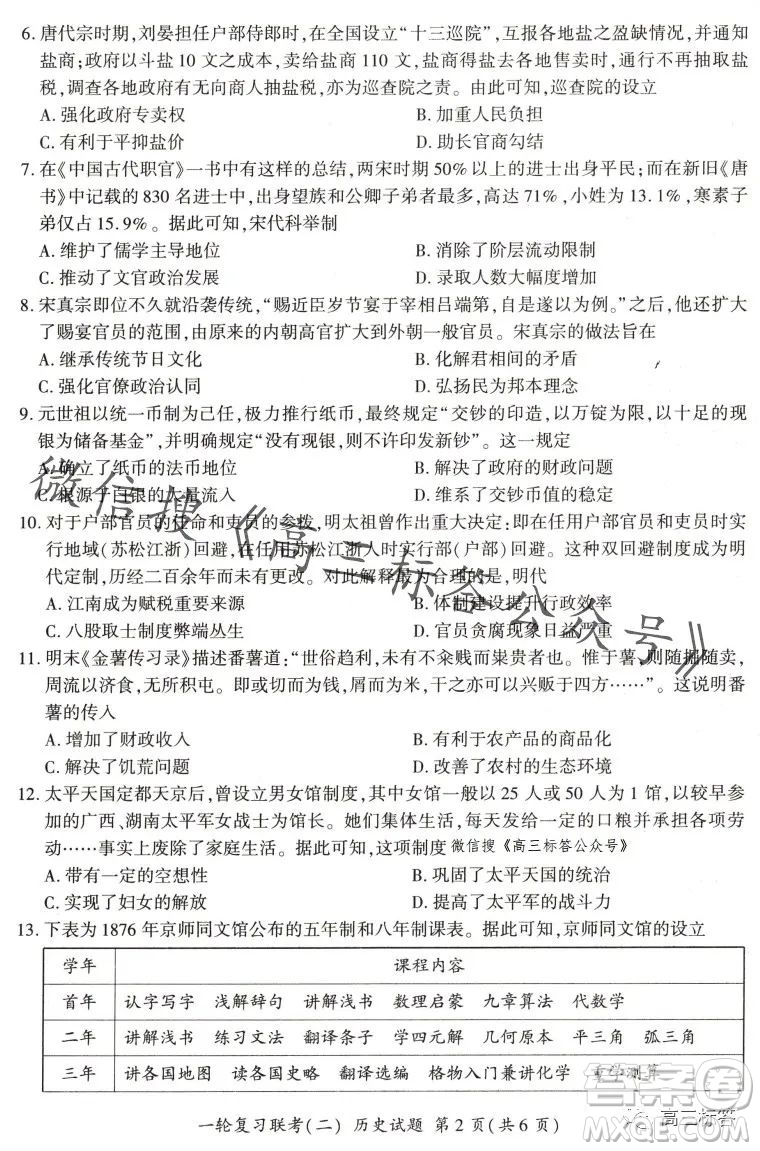 6. 唐代宗时期,刘晏担任户部侍郎时,在全国设立“十三巡院”,互报各地盐之盈缺情况,并通知
盐商;政府以斗盐 10 文之成本,卖给盐商 110 文,盐商得盐去各地售卖时,通行不再抽取盐
税,调查各地政府有无向商人抽盐税,亦为巡查院之责。由此可知,巡查院的设立
A. 强化政府专卖权 B. 加重人民负担
C. 有利于平抑盐价 D. 助长官商勾结
7. 在《中国古代职官》一书中有这样的总结,两宋时期 50% 以上的进士出身平民;而在新旧《唐
书》中记载的 830 名进士中,出身望族和公卿子弟者最多,高达 71%,小姓为 13.1%,寒素子
弟仅占 15.9%。据此可知,宋代科举制
A. 维护了儒学主导地位 B. 消除了阶层流动限制
C. 推动了文官政治发展 D. 录取人数大幅度增加
8. 宋真宗即位不久就沿袭传统,“赐近臣岁节宴于宰相吕端第,自是遂以为例。”之后,他还扩大
了赐宴官员的范围,由原来的内朝高官扩大到外朝一般官员。宋真宗的做法旨在
A. 继承传统节日文化 B. 化解君相间的矛盾
C. 强化官僚政治认同 D. 弘扬民为邦本理念
9. 元世祖以统一币制为己任,极力推行纸币,最终规定“交钞的印造,以万锭为限,以十足的现
银为储备基金”,并明确规定“若没有现银,则不许印发新钞”。这一规定
A. 确立了纸币的法币地位 B. 解决了政府的财政问题
C. 根源于白银的大量流入 D. 维系了交钞币值的稳定
10. 对于户部官员的使命和吏员的参拨,明太祖曾作出重大决定:即在任用户部官员和吏员时实
行地域(苏松江浙)回避,在任用苏松江浙人时实行部(户部)回避。这种双回避制度成为明
代定制,历经二百余年而未有更改。对此解释最为合理的是,明代
A. 江南成为赋税重要来源 B. 体制建设提升行政效率
C. 八股取士制度弊端丛生 D. 官员贪腐现象日益严重
11. 明末《金薯传习录》描述番薯道:“世俗趋利,未有不籴贱而粜贵者也。惟于薯,则随掘随卖,
周流以济食,无所积屯。即或切而为钱,屑而为米,干之亦可以兴贩于四方……”。这说明番
薯的传入
A. 增加了财政收入 B. 有利于农产品的商品化
C. 解决了饥荒问题 D. 改善了农村的生态环境
12. 太平天国定都天京后,曾设立男女馆制度,其中女馆一般以 25 人或 50 人为 1 馆,以较早参
加的广西、湖南太平军女战士为馆长。她们集体生活。每天发给一定的口粮并承担各项劳
动……事实上废除了家庭生活。这项制度 微信搜《高三标答公众号》
A. 带有一定的空想性 B. 巩固了太平天国的统治
C. 实现了妇女的解放 D. 提高了太平军的战斗力
13. 下表为 1876 年京师同文馆公布的五年制和八年制课表。据此可知,京师同文馆的设立
学年 课程内容
首年 认字写字 浅解辞句 讲解浅书 数理启蒙 九章算法 代数学
二年 讲解浅书 练习文法 翻译条子 学四元解 几何原本 平三角 弧三角
三年 讲各国地图 读各国史略 翻译选编 格物入门兼讲化学 重学测算
一轮复习联考(二) 历史试题 第 2 页(共 6 页)
微信搜《高三标答公众号》
答案卷
高三标答